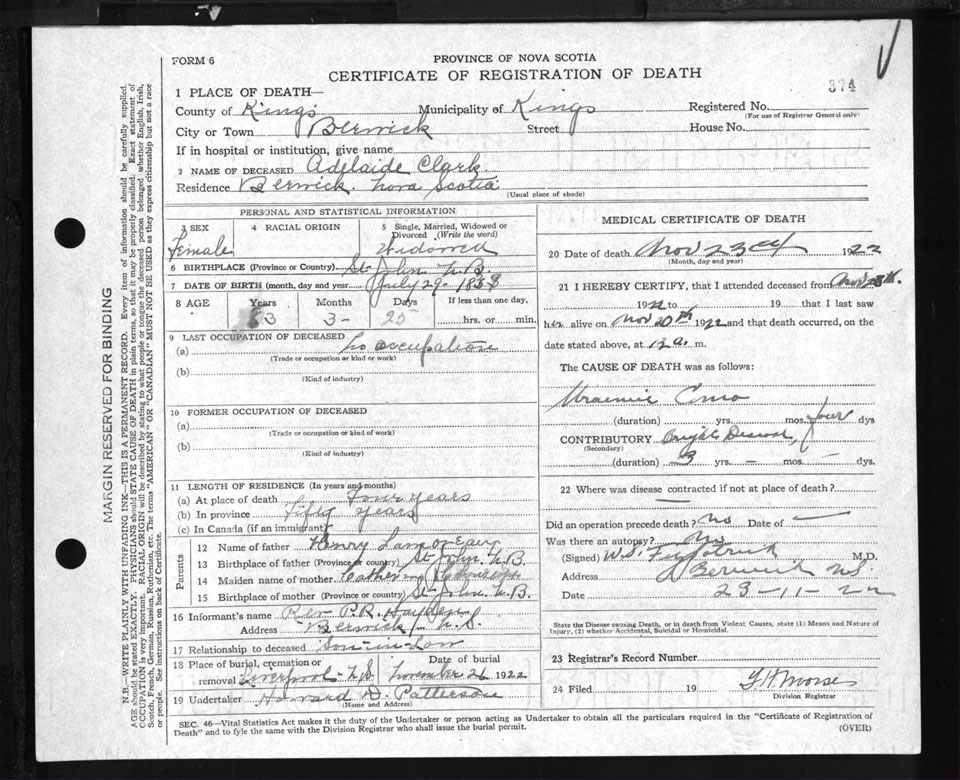 FORM 6
PROVINCE OF NOVA SCOTIA
CERTIFICATE OF REGISTRATION OF DEATH
374
1 PLACE OF DEATH—
County of King's Municipality of Kings Registered No.
(For use of Registrar General only)
City or Town Berwick Street House No.
If in hospital or institution, give name
2 NAME OF DECEASED Adelaide Clark.
Residence Berwick. Nova Scotia
(Usual place of abode)
PERSONAL AND STATISTICAL INFORMATION
3 SEX 4 RACIAL ORIGIN 5 Single, Married, Widowed or Divorced (Write the word)
Female Widowed
6 BIRTHPLACE (Province or Country) St. John N.B.
7 DATE OF BIRTH (month, day and year) July 29-1838
8 AGE Years Months Days If less than one day,
83 3- 25 hrs. or min.
9 LAST OCCUPATION OF DECEASED
(a) No occupation
(Trade or occupation or kind or work)
(b)
(Kind of industry)
10 FORMER OCCUPATION OF DECEASED
(a)
(Trade or occupation or kind of work)
(b)
(Kind of industry)
11 LENGTH OF RESIDENCE (In years and months)
(a) At place of death Four years
(b) In province Fifty years
(c) In Canada (if an immigrant)
Parents
12 Name of father Henry
13 Birthplace of father (Province or country) St. John N.B.
14 Maiden name of mother Catherine
15 Birthplace of mother (Province or country) St. John N.B.
16 Informant's name Rev P.R. Hayden
Address Berwick N.S.
17 Relationship to deceased Son-in-Law
18 Place of burial, cremation or removal Liverpool N.S. Date of burial November 26 1922
19 Undertaker Howard D. Patterson
(Name and Address)
MEDICAL CERTIFICATE OF DEATH
20 Date of death Nov 23rd 1922
(Month, day and year)
21 I HEREBY CERTIFY, that I attended deceased from Nov
1922 to 19 that I last saw
her alive on Nov 20th 1922 and that death occurred, on
date stated above, at 12 a. m.
The CAUSE OF DEATH was as follows:
Uraemic Coma
(duration) yrs. mos. four dys
CONTRIBUTORY Brights Disease,
(Secondary)
(duration) 3 yrs. – mos – dys.
22 Where was disease contracted if not at place of death?
Did an operation precede death? No Date of —
Was there an autopsy? No
(Signed) W.S. Fitzpatrick M.D.
Address Berwick N.S.
Date 23-11-22
State the Disease causing Death, or in death from Violent Causes, state (1) Means and Nature of
Injury, (2) whether Accidental, Suicidal or Homicidal.
23 Registrar's Record Number
24 Filed 19 Morse
Division Registrar
SEC. 46—Vital Statistics Act makes it the duty of the Undertaker or person acting as Undertaker to obtain all the particulars required in the "Certificate of Registration of
Death" and to fyle the same with the Division Registrar who shall issue the burial permit. (OVER)
MARGIN RESERVED FOR BINDING
N.B.—WRITE PLAINLY WITH UNFADING INK—THIS IS A PERMANENT RECORD. Every item of information should be carefully supplied.
AGE should be stated EXACTLY. PHYSICIANS should STATE CAUSE OF DEATH in plain terms, so that it may be properly classified. Exact statement of
OCCUPATION is very important. RACIAL ORIGIN will be described by stating to what people or tongue the deceased person belonged whether English, Irish,
Scotch, French, German, Russian, Ruthenian, etc. The terms "AMERICAN" OR "CANADIAN" MUST NOT BE USED as they express citizenship but not a race
or people. See instructions on back of Certificate.